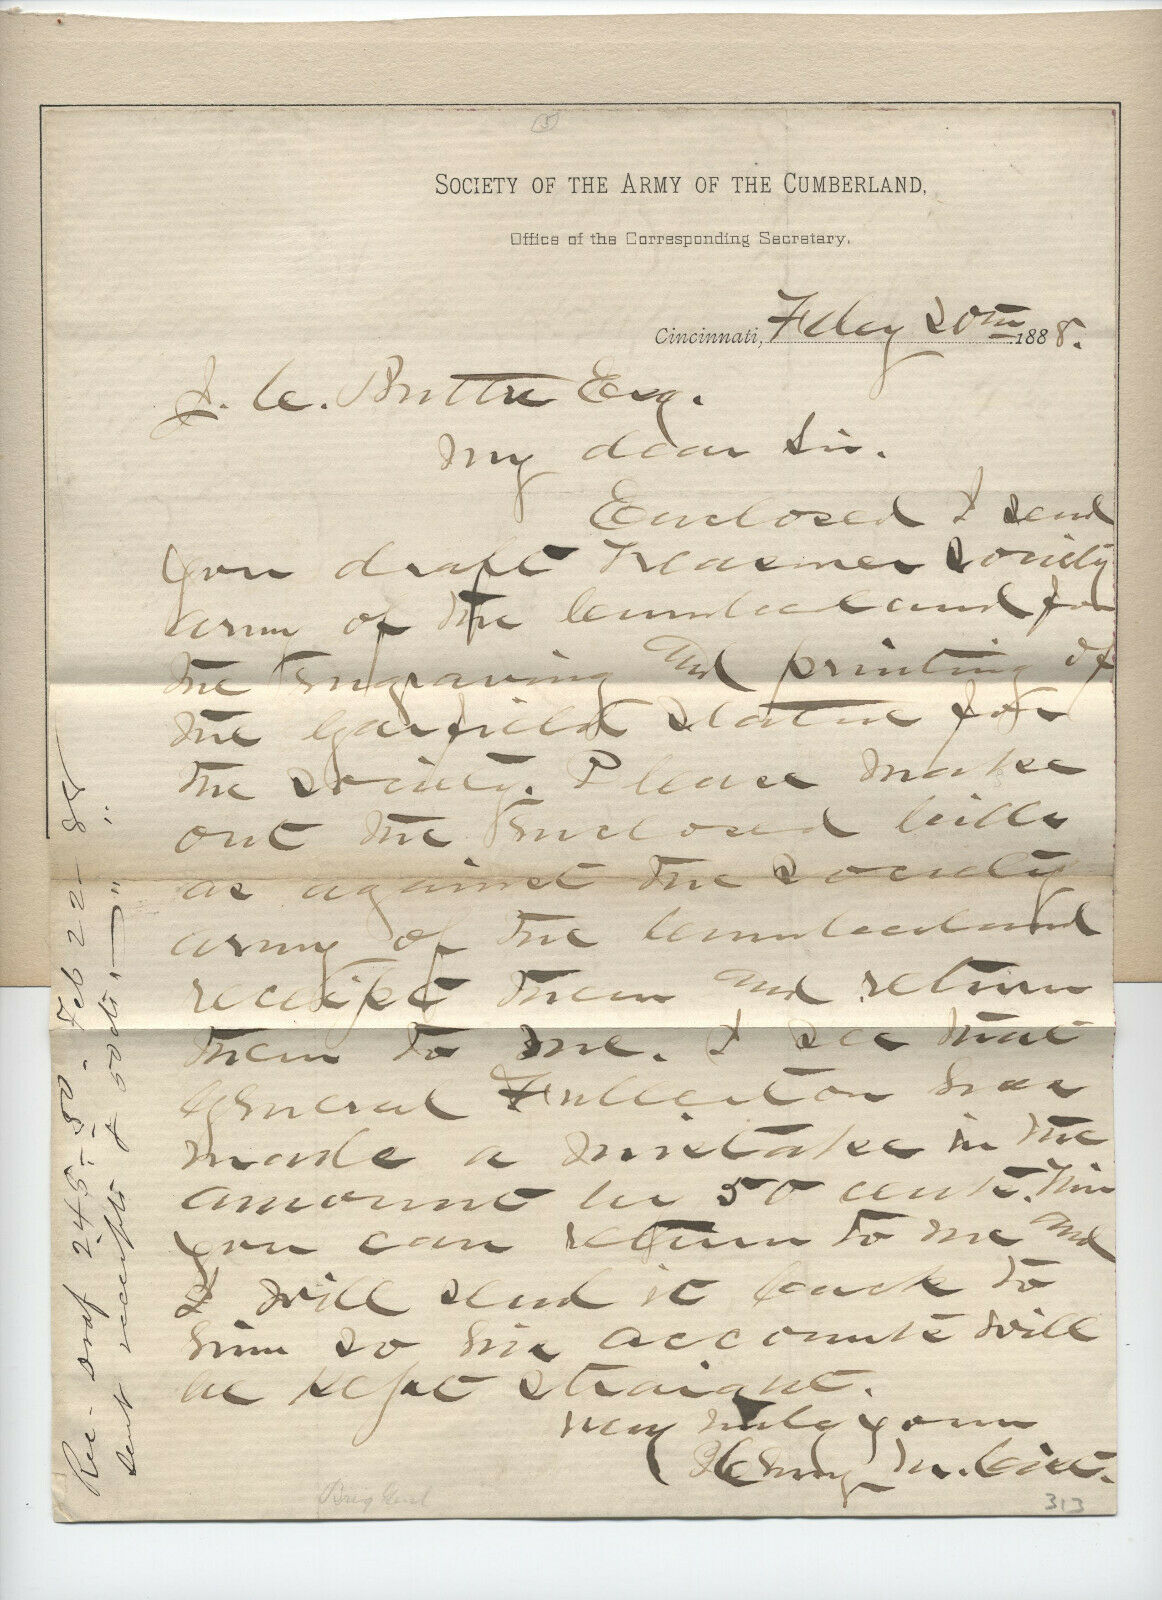 SOCIETY OF THE ARMY OF THE CUMBERLAND,
Office of the Corresponding Secretary.
Cincinnati, Feby 20th 1888.
J. C. Buttre Esq.
My dear Sir.
Enclosed I send
you draft Treasurer Society
Army of the Cumberland for
the Engraving and printing of
the Garfield Statue for
the Society. Please make
out the Enclosed bills
as against the Society
Army of the Cumberland
receipt them and return
them to me. I see that
General Fullerton has
made a mistake in the
amount by 50 cents. This
you can return to me and
I will send it back to
him so his accounts will
be kept straight.
Very truly yours
Henry M. Cist.
Brig Genl
313
Rec- Draf 245.50 - Feb 22 - 88
Sent receipts & 50cts " "